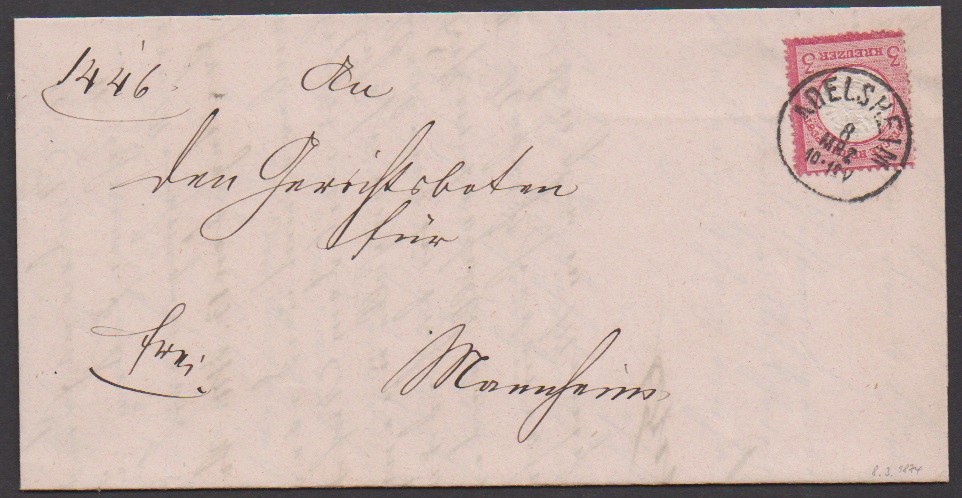 1446
An
3 KREUZER 3
ADELSHEIM
8
MRZ
10-11V
den Gerichtsboten
für
frei.
Mannheim
8.3.1874